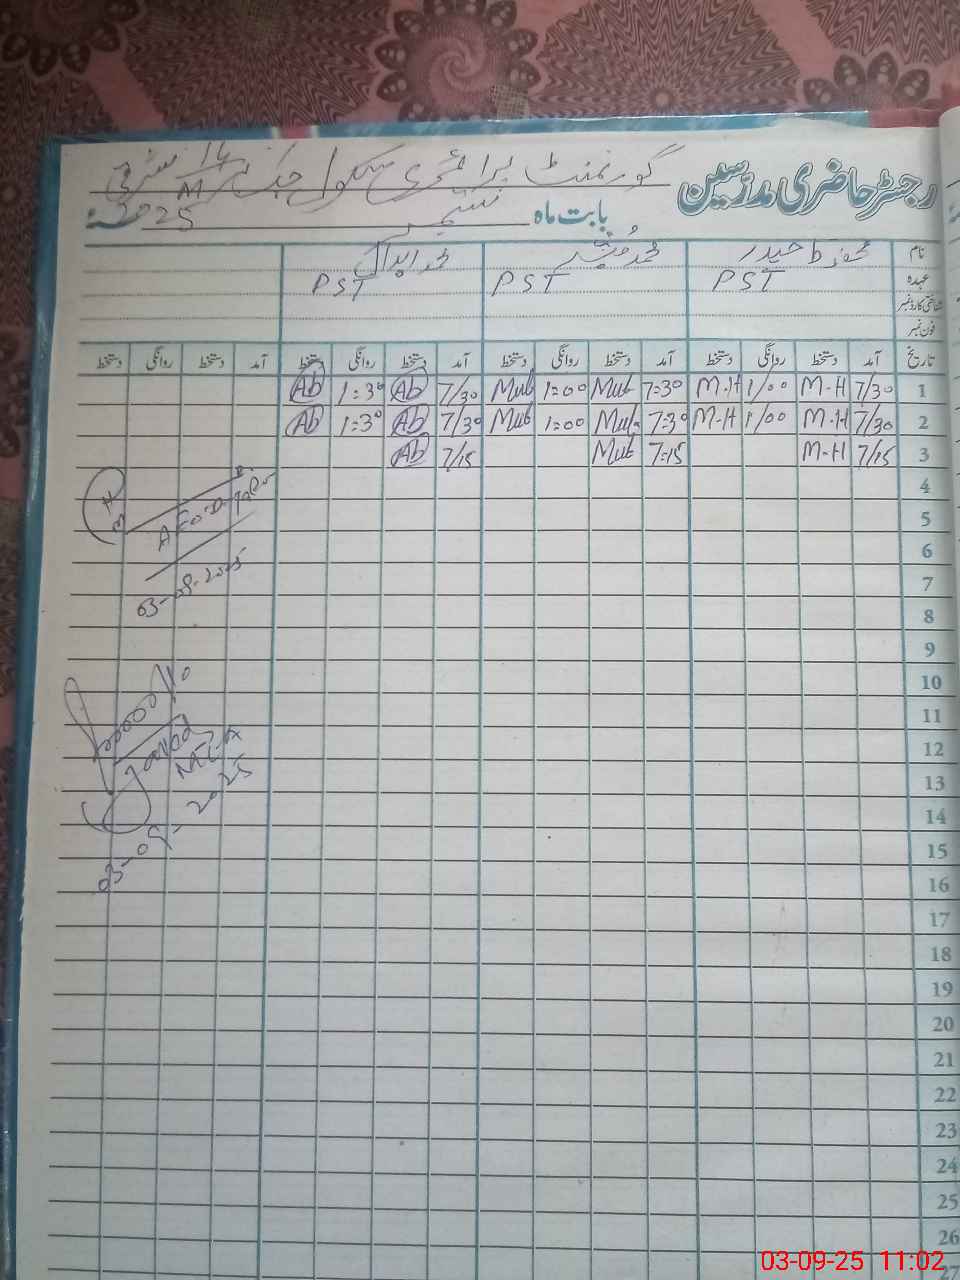 رجسٹر حاضری مدرسین گورنمنٹ پرائمری سکول چک نمبر 14/M
بابت ماہ ستمبر 25
نام محفوظ حیدر محمد مبشر محمد ابدال
عہدہ PST PST PST
شناختی کارڈ نمبر
فون نمبر
تاریخ آمد دستخط روانگی دستخط آمد دستخط روانگی دستخط آمد دستخط روانگی دستخط آمد دستخط روانگی دستخط
1 7/30 M-H 1/00 M-H 7=30 Mub 1=00 Mub 7/30 Ab 1=30 Ab
2 7/30 M-H 1/00 M-H 7=30 Mub 1=00 Mub 7/30 Ab 1=30 Ab
3 7/15 M-H 7=15 Mub 7/15 Ab
4
5
6
7
8
9
10
11
12
13
14
15
16
17
18
19
20
21
22
23
24
25
26
27
03-09-2025
Javed
MEA
03-09-2025
03-09-25 11:02